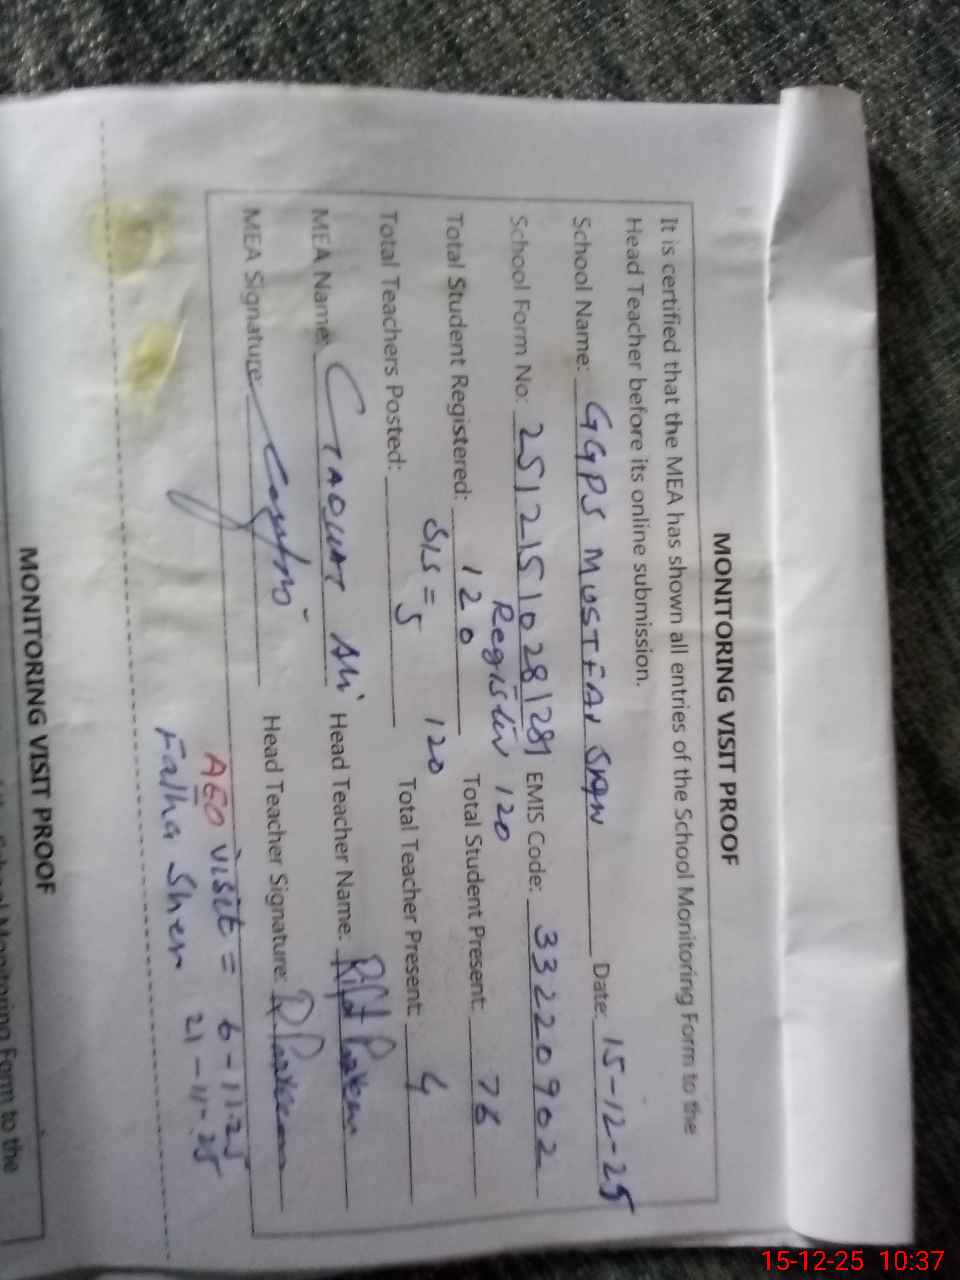 MONITORING VISIT PROOF
It is certified that the MEA has shown all entries of the School Monitoring Form to the
Head Teacher before its online submission.
School Name: GGPS MUSTFAI Date: 15-12-25
School Form No: 251215102812 81 EMIS Code: 33220902
Register 120
Total Student Registered: 120 Total Student Present: 76
SIS = 5 120
Total Teachers Posted: Total Teacher Present: 4
MEA Name: Ali Head Teacher Name:
MEA Signature: Head Teacher Signature:
AEO visit = 6-11-25
Sher 21-11-25
MONITORING VISIT PROOF
Monitoring Form to the
15-12-25 10:37